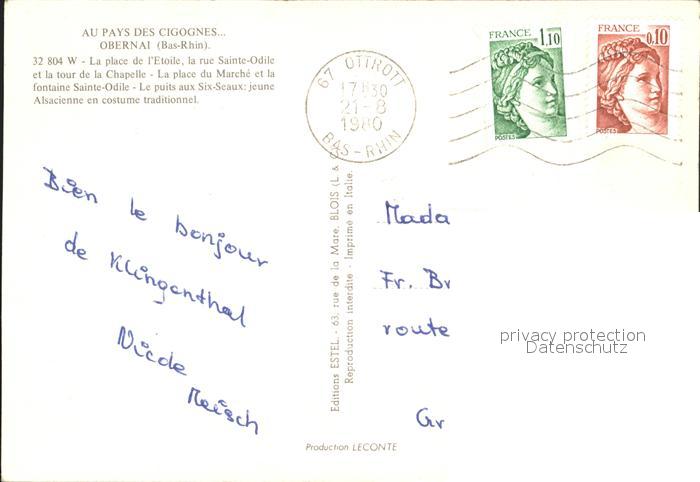 AU PAYS DES CIGOGNES...
OBERNAI (Bas-Rhin).
32 804 W - La place de l'Etoile, la rue Sainte-Odile
et la tour de la Chapelle - La place du Marché et la
fontaine Sainte-Odile - Le puits aux Six-Seaux: jeune
Alsacienne en costume traditionnel.
67 OTTROTT
17H30
21-8
1980
BAS-RHIN
FRANCE 1,10
POSTES
FRANCE 0,10
POSTES
Bien le bonjour
de Klingenthal
Nicole
Meisch
Editions ESTEL. - 63, rue de la Mare, BLOIS (L &
Reproduction interdite - Imprimé en Italie.
Mada
Fr. Br
route
Gr
privacy protection
Datenschutz
Production LECONTE